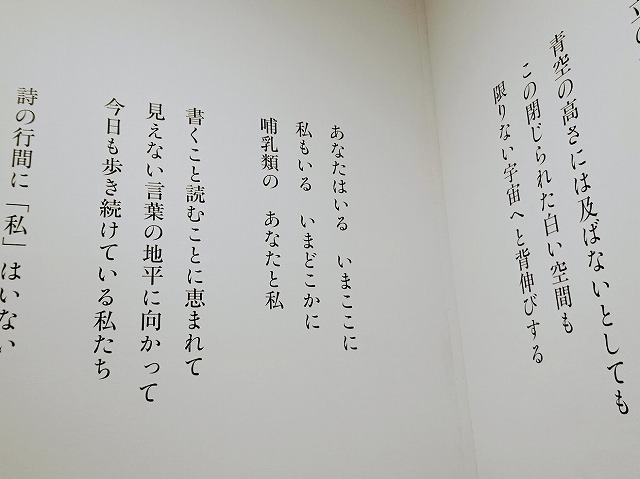 青空の高さには及ばないとしても
この閉じられた白い空間も
限りない宇宙へと背伸びする
あなたはいる　いまここに
私もいる　いまどこかに
哺乳類の　あなたと私
書くこと読むことに恵まれて
見えない言葉の地平に向かって
今日も歩き続けている私たち
詩の行間に「私」はいない